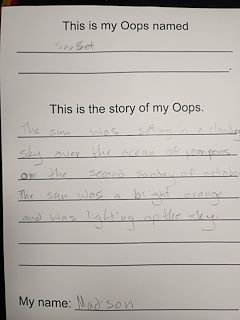 This is my Oops named
Sunset
This is the story of my Oops.
The sun was seting in a cloudy
sky over the ocean of pompoms
on the second sunday of october
The sun was a bright orange
and was lighting up the sky.
My name: Madison